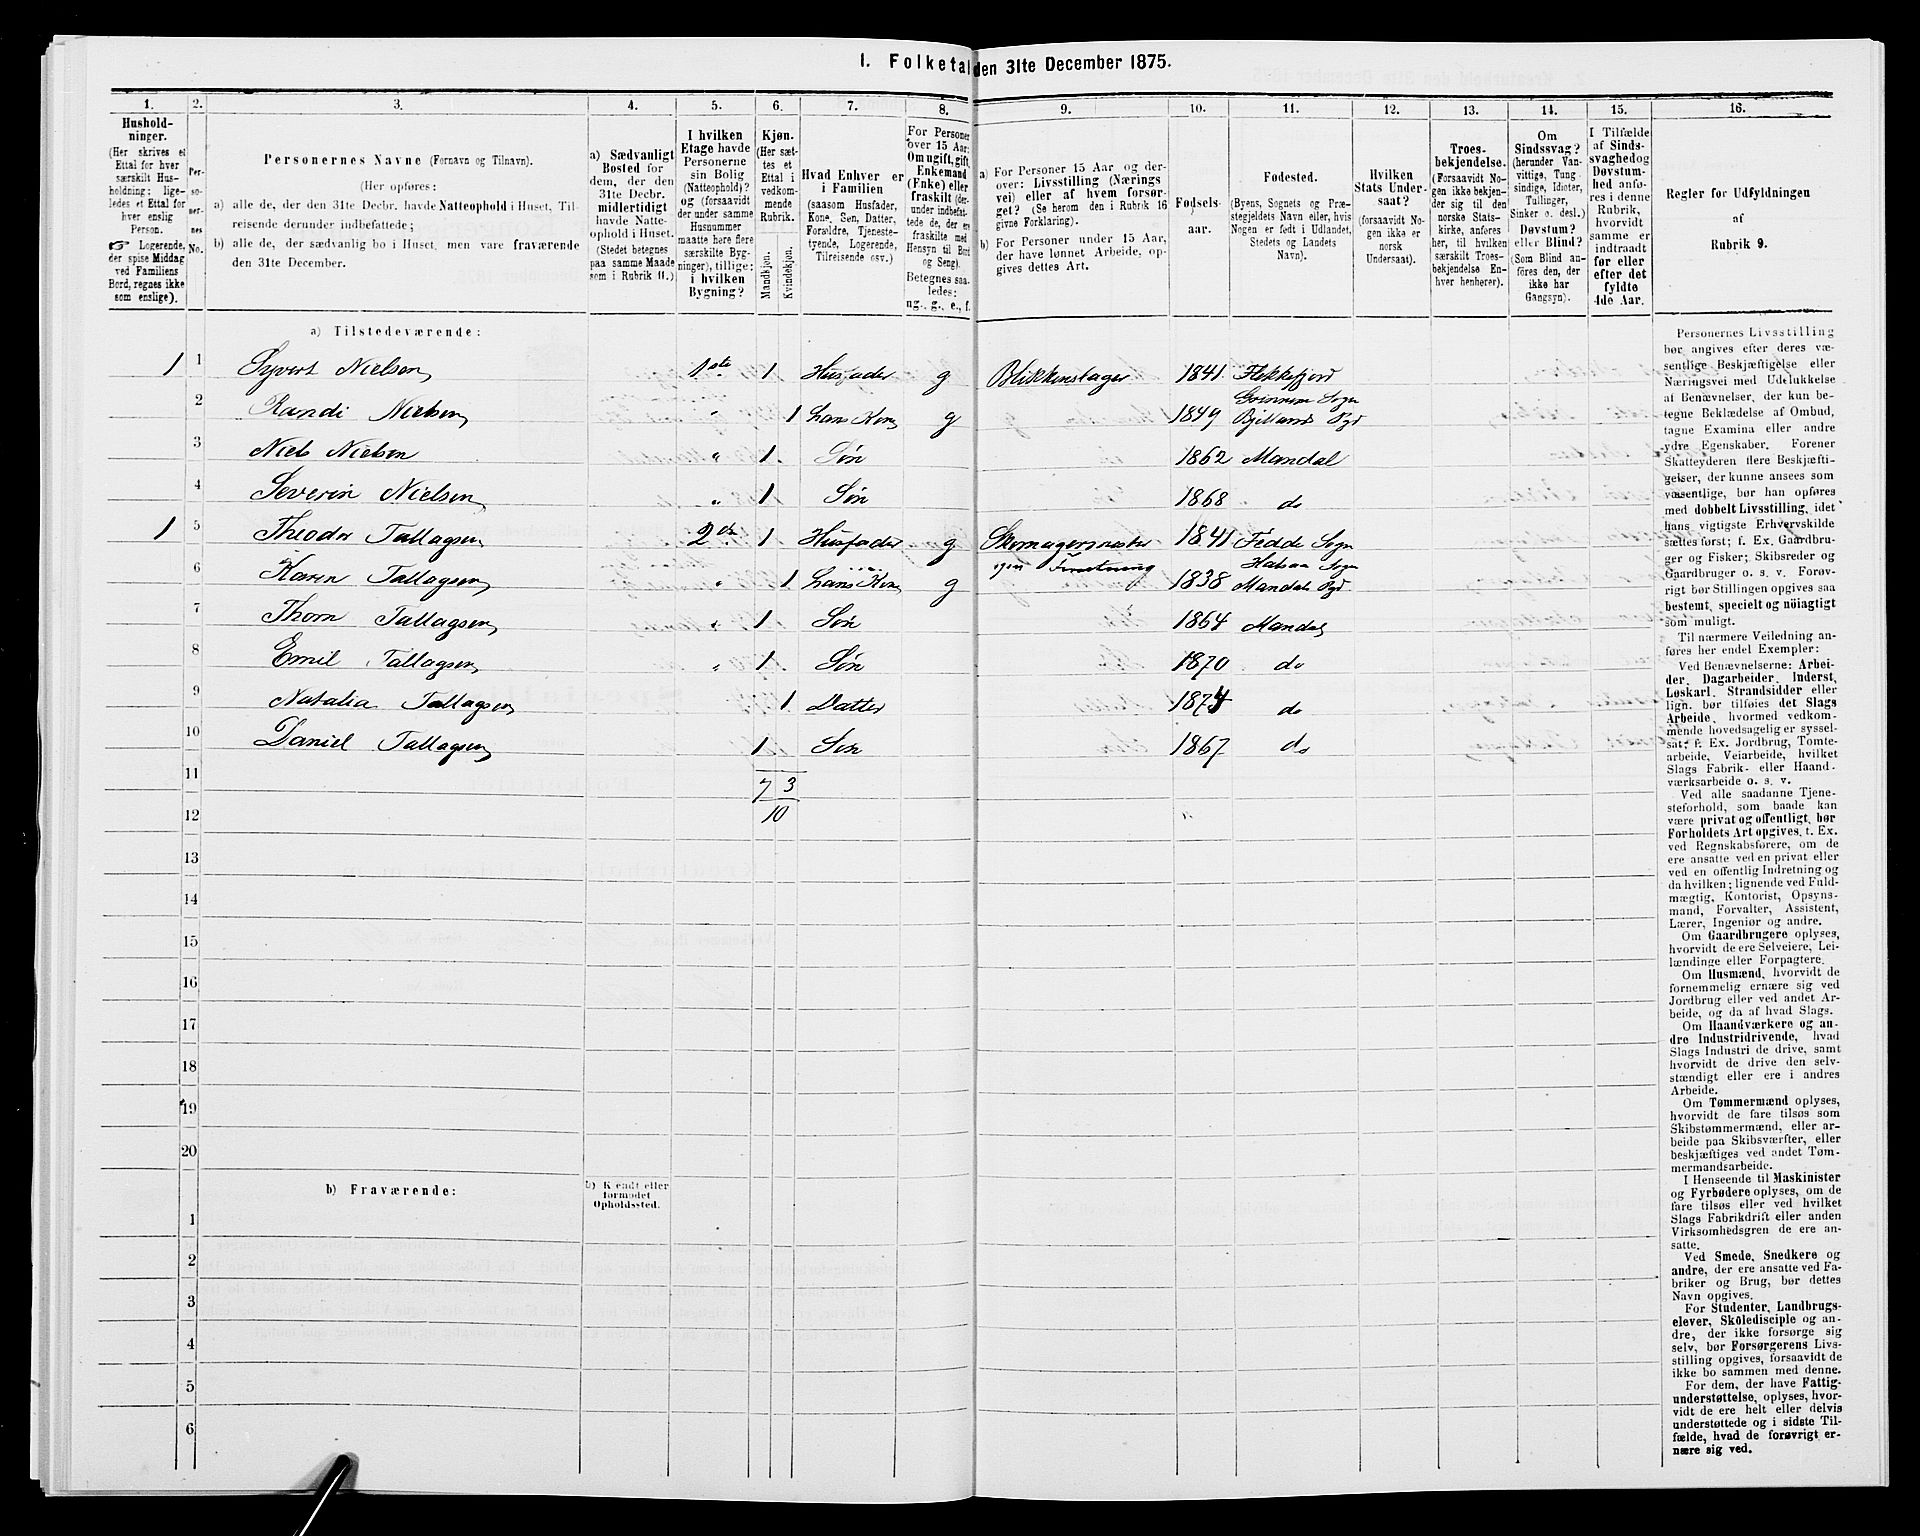 1. Folketal den 31te December 1875.
1. 2. 3. 4. 5. 6. 7. 8. 9. 10. 11. 12. 13. 14. 15. 16.
Hushold-
ninger.
(Her skrives et
Ettal for hver
særskilt Hus-
holdning; lige-
ledes et Ettal for
hver enslig
Person.
☞ Logerende,
der spise Middag
ved Familiens
Bord, regnes ikke
som enslige).
Per-
so-
ner-
nes
No.
Personernes Navne (Fornavn og Tilnavn).
(Her opføres:
a) alle de, der den 31te Decbr. havde Natteophold i Huset, Til-
reisende derunder indbefattede;
b) alle de, der sædvanlig bo i Huset, men vare fraværende
den 31te December.
a) Sædvanligt
Bosted for
dem, der den
31te Decbr.
midlertidigt
havde Natte-
ophold i Huset.
(Stedet betegnes
paa samme Maade
som i Rubrik 11.)
I hvilken
Etage havde
Personerne
sin Bolig
(Natteophold)?
og (forsaavidt
der under samme
Husnummer
maatte høre flere
særskilte Byg-
ninger), tillige:
i hvilken
Bygning?
Kjøn.
(Her sæt-
tes et
Ettal i
vedkom-
mende
Rubrik.
Mandkjøn.
Kvindekjøn.
Hvad Enhver er
i Familien
(saasom Husfader,
Kone, Søn, Datter,
Forældre, Tjeneste-
tyende, Logerende,
Tilreisende osv.)
For Personer
over 15 Aar:
Om ugift, gift,
Enkemand
(Enke) eller
fraskilt (der-
under indbefat-
tede de, der ere
fraskilte med
Hensyn til Bord
og Seng).
Betegnes saa-
ledes:
ug., g., e., f.
a) For Personer 15 Aar og der-
over: Livsstilling (Nærings-
vei) eller af hvem forsør-
get? (Se herom den i Rubrik 16
givne Forklaring).
b) For Personer under 15 Aar,
der have lønnet Arbeide, op-
gives dettes Art.
Fødsels-
aar.
Fødested.
(Byens, Sognets og Præ-
stegjeldets Navn eller, hvis
Nogen er født i Udlandet,
Stedets og Landets
Navn).
Hvilken
Stats Under-
saat?
(forsaavidt No-
gen ikke er
norsk
Undersaat).
Troes-
bekjendelse.
(Forsaavidt No-
gen ikke bekjen-
der sig til den
norske Stats-
kirke, anføres
her, til hvilken
særskilt Troes-
bekjendelse En-
hver henhører).
Om
Sindssvag?
(herunder Van-
vittige, Tung-
sindige, Idioter,
Tullinger,
Sinker o. desl.)
Døvstum?
eller Blind?
(Som Blind an-
føres den, der
ikke har
Gangsyn).
I Tilfælde
af Sinds-
svaghed og
Døvstum-
hed anfø-
res i denne
Rubrik,
hvorvidt
samme er
indtraadt
før eller
efter det
fyldte
4de Aar.
Regler for Udfyldningen
af
Rubrik 9.
a) Tilstedeværende:
1 1 Syvert Nielsen 1ste 1 Husfader g Blikkenslager 1841 Flekkefjord
2 Randi Nielsen " 1 hans Kone g 1849 Grinnem Sogn
Bjelland Pgd
3 Niels Nielsen " 1 Søn 1862 Mandal
4 Severin Nielsen " 1 Søn 1868 do
1 5 Theodor Tallagsen 2de 1 Husfader g Skomagermester 1841 Fedde Sogn
egen Forretning
6 Karen Tallagsen " 1 hans Kone g 1838 Halsaa Sogn
Mandals Pgd.
7 Thom Tallagsen " 1 Søn 1864 Mandal
8 Emil Tallagsen " 1 Søn 1870 do
9 Natalia Tallagsen 1 Datter 1874 do
10 Daniel Tallagsen 1 Søn 1867 do
11 7 3
12 10
13
14
15
16
17
18
19
20
b) Fraværende:
b) Kjendt eller
formodet
Opholdssted.
1
2
3
4
5
6
Personernes Livsstilling
bør angives efter deres væ-
sentlige Beskjæftigelse eller
Næringsvei med Udelukkelse
af Benævnelser, der kun be-
tegne Beklædelse af Ombud,
tagne Examina eller andre
ydre Egenskaber. Forener
Skatteyderen flere Beskjæfti-
gelser, der kunne ansees som
væsentlige, bør han opføres
med dobbelt Livsstilling, idet
hans vigtigste Erhvervskilde
sættes først; f. Ex. Gaardbru-
ger og Fisker; Skibsreder og
Gaardbruger o. s. v. Forøv-
rigt bør Stillingen opgives saa
bestemt, specielt og nöiagtigt
som muligt.
Til nærmere Veiledning an-
føres her endel Exempler:
Ved Benævnelserne: Arbei-
der, Dagarbeider, Inderst,
Løskarl, Strandsidder eller
lign. bør tilføies det Slags
Arbeide, hvormed vedkom-
mende hovedsagelig er syssel-
sat; f. Ex. Jordbrug, Tomte-
arbeide, Veiarbeide, hvilket
Slags Fabrik- eller Haand-
værksarbeide o. s. v.
Ved alle saadanne Tjene-
steforhold, som baade kan
være privat og offentligt, bør
Forholdets Art opgives, t. Ex.
ved Regnskabsførere, om de
ere ansatte ved en privat eller
ved en offentlig Indretning og
da hvilken; lignende ved Fuld-
mægtig, Kontorist, Opsyns-
mand, Forvalter, Assistent,
Lærer, Ingeniør og andre.
Om Gaardbrugere oplyses,
hvorvidt de ere Selveiere, Lei-
lændinge eller Forpagtere.
Om Husmænd, hvorvidt de
fornemmelig ernære sig ved
Jordbrug eller ved andet Ar-
beide, og da af hvad Slags.
Om Haandværkere og an-
dre Industridrivende, hvad
Slags Industri de drive, samt
hvorvidt de drive den selv-
stændigt eller ere i andres
Arbeide.
Om Tømmermænd oplyses,
hvorvidt de fare tilsøs som
Skibstømmermænd, eller ar-
beide paa Skibsværfter, eller
beskjæftiges ved andet Tøm-
mermandsarbeide.
I Henseende til Maskinister
og Fyrbødere oplyses, om de
fare tilsøs eller ved hvilket
Slags Fabrikdrift eller anden
Virksomhedsgren de ere an-
satte.
Ved Smede, Snedkere og
andre, der ere ansatte ved Fa-
briker og Brug, bør dettes
Navn opgives.
For Studenter, Landbrugs-
elever, Skoledisciple og an-
dre, der ikke forsørge sig
selv, bør Forsørgerens Livs-
stilling opgives, forsaavidt de
ikke bo sammen med denne.
For dem, der have Fattig-
understøttelse, oplyses, hvor-
vidt de ere helt eller delvis
understøttede og i sidste Til-
fælde, hvad de forøvrigt er-
nære sig ved.